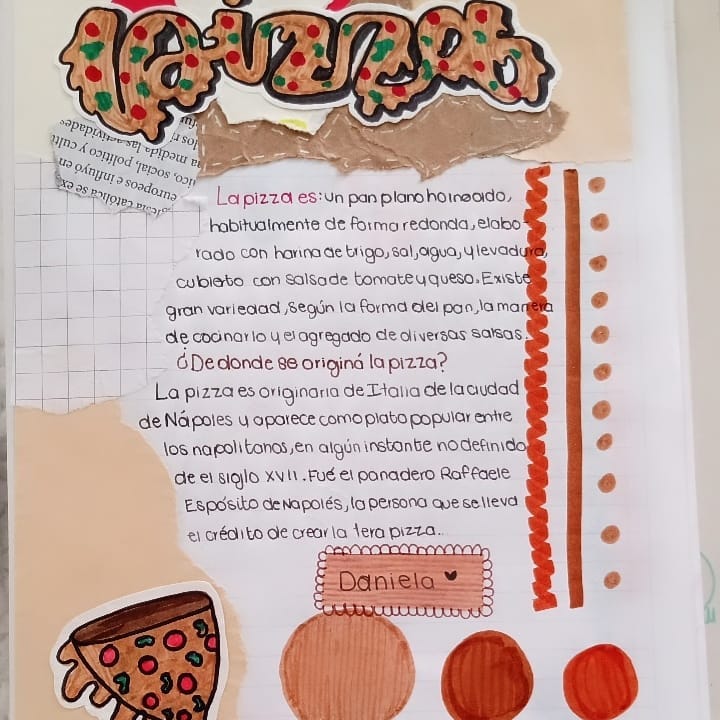 la pizza
fu
los ri
medida las actividades
na
ico, social, político y cult
europeos e influyó en
esia católica se ex
La pizza es: un pan plano horneado,
habitualmente de forma redonda, elabo-
rado con harina de trigo, sal, agua, y levadura,
cubierto con salsa de tomate y queso. Existe
gran variedad, según la forma del pan, la manera
de cocinarlo y el agregado de diversas salsas.
¿De donde se originó la pizza?
La pizza es originaria de Italia de la ciudad
de Nápoles y aparece como plato popular entre
los napolitanos, en algún instante no definido
de el siglo XVII. Fué el panadero Raffaele
Espósito de Napolés, la persona que se lleva
el crédito de crear la 1era pizza..
Daniela